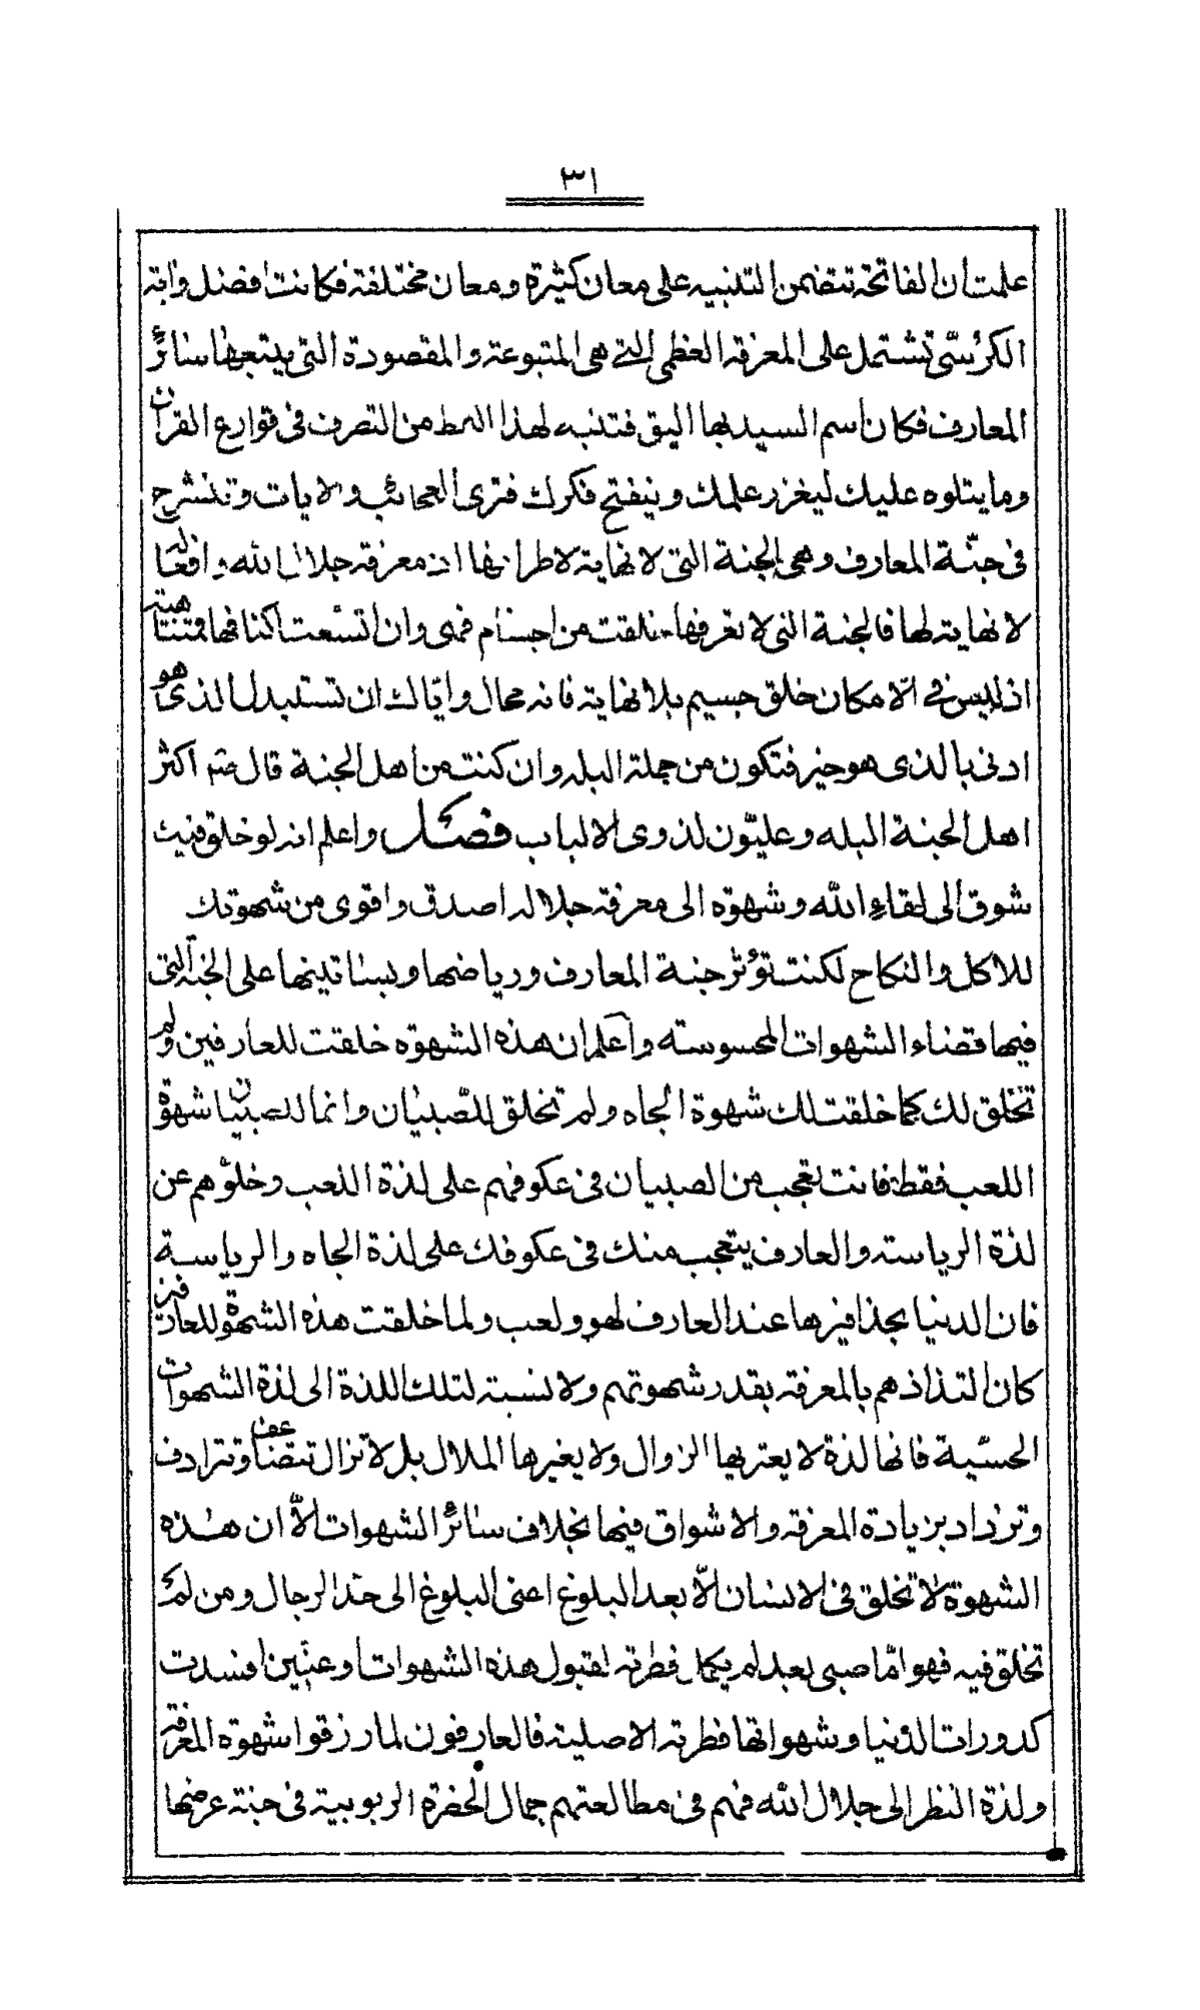 ٣١
علمت أن الفاتحة تتضمن التنبيه على معان كثيرة ومعان مختلفة فكانت افضل واية
الكرسّى تشتمل على المعرفة العظمى التى هى المتبوعة والمقصودة التى يتبعها سائر
المعارف فكان اسم السيد بها اليق فتنبه لهذا النمط من التصرف فى قوارع القران
وما يتلوه عليك ليغزر علمك وينفتح فكرك فترى العجائب والايات وتنشرح
فى جنّة المعارف وهى الجنة التى لا نهاية لاطرافها اذ معرفة جلال الله وافعاله
لا نهاية لها فالجنة التى لا تعرفها خلقت من اجسام فهى وان اتسعت اكنافها فمتناهية
اذ ليس فى الامكان خلق جسيم بلا نهاية فانه محال وايّاك ان تستبدل الذى هو
ادنى بالذى هو خير فتكون من جملة البله وان كنت من اهل الجنة قال عم اكثر
اهل الجنة البله وعليّون لذوى الالباب فصل واعلم انه لو خلق فيك
شوق الى لقاء الله وشهوة الى معرفة جلاله اصدق واقوى من شهوتك
للاكل والنكاح لكنت تؤثر جنة المعارف ورياضها وبساتينها على الجنة التى
فيها قضاء الشهوات المحسوسة واعلم ان هذه الشهوة خلقت للعارفين ولم
تخلق لك كما خلقت لك شهوة الجاه ولم تخلق للصّبيان وانما للصبيان شهوة
اللعب فقط فانت تعجب من الصبيان فى عكوفهم على لذة اللعب وخلوّهم عن
لذة الرياسة والعارف يتعجب منك فى عكوفك على لذة الجاه والرياسة
فان الدنيا بحذافيرها عند العارف لهو ولعب ولما خلقت هذه الشهوة للعارفين
كان التذاذهم بالمعرفة بقدر شهوتهم ولا نسبة لتلك اللذة الى لذة الشهوات
الحسّية فانها لذة لا يعتريها الزوال ولا يغيرها الملال بل لا تزال تتضاعف وتترادف
وتزداد بزيادة المعرفة والاشواق فيها بخلاف سائر الشهوات الاّ ان هذه
الشهوة لا تخلق فى الانسان الاّ بعد البلوغ اعنى البلوغ الى حدّ الرجال ومن لم
تخلق فيه فهو امّا صبى بعد لم يكمل فطرته لقبول هذه الشهوات او عنّين افسدت
كدورات الدنيا وشهواتها فطرته الاصلية فالعارفون لما رزقوا شهوة المعرفة
ولذة النظر الى جلال الله فهم فى مطالعتهم جمال الحضرة الربوبية فى جنة عرضها